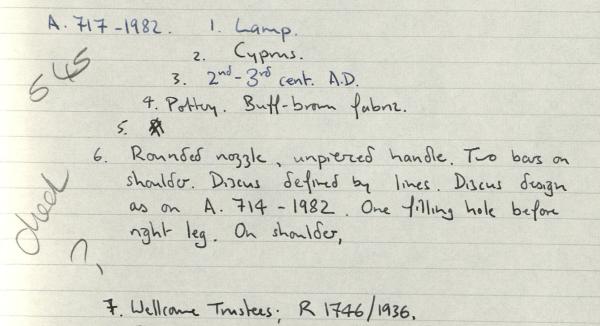 A. 717-1982. 1. Lamp.
2. Cyprus.
545
3. 2nd-3rd cent. A.D.
4. Pottery. Buff-brown fabric.
5.
6. Rounded nozzle, unpierced handle. Two bars on
shoulder. Discus defined by lines. Discus design
as on A. 714-1982. One filling hole before
right leg. On shoulder,
check
?
7. Wellcome Trustees; R 1746/1936.